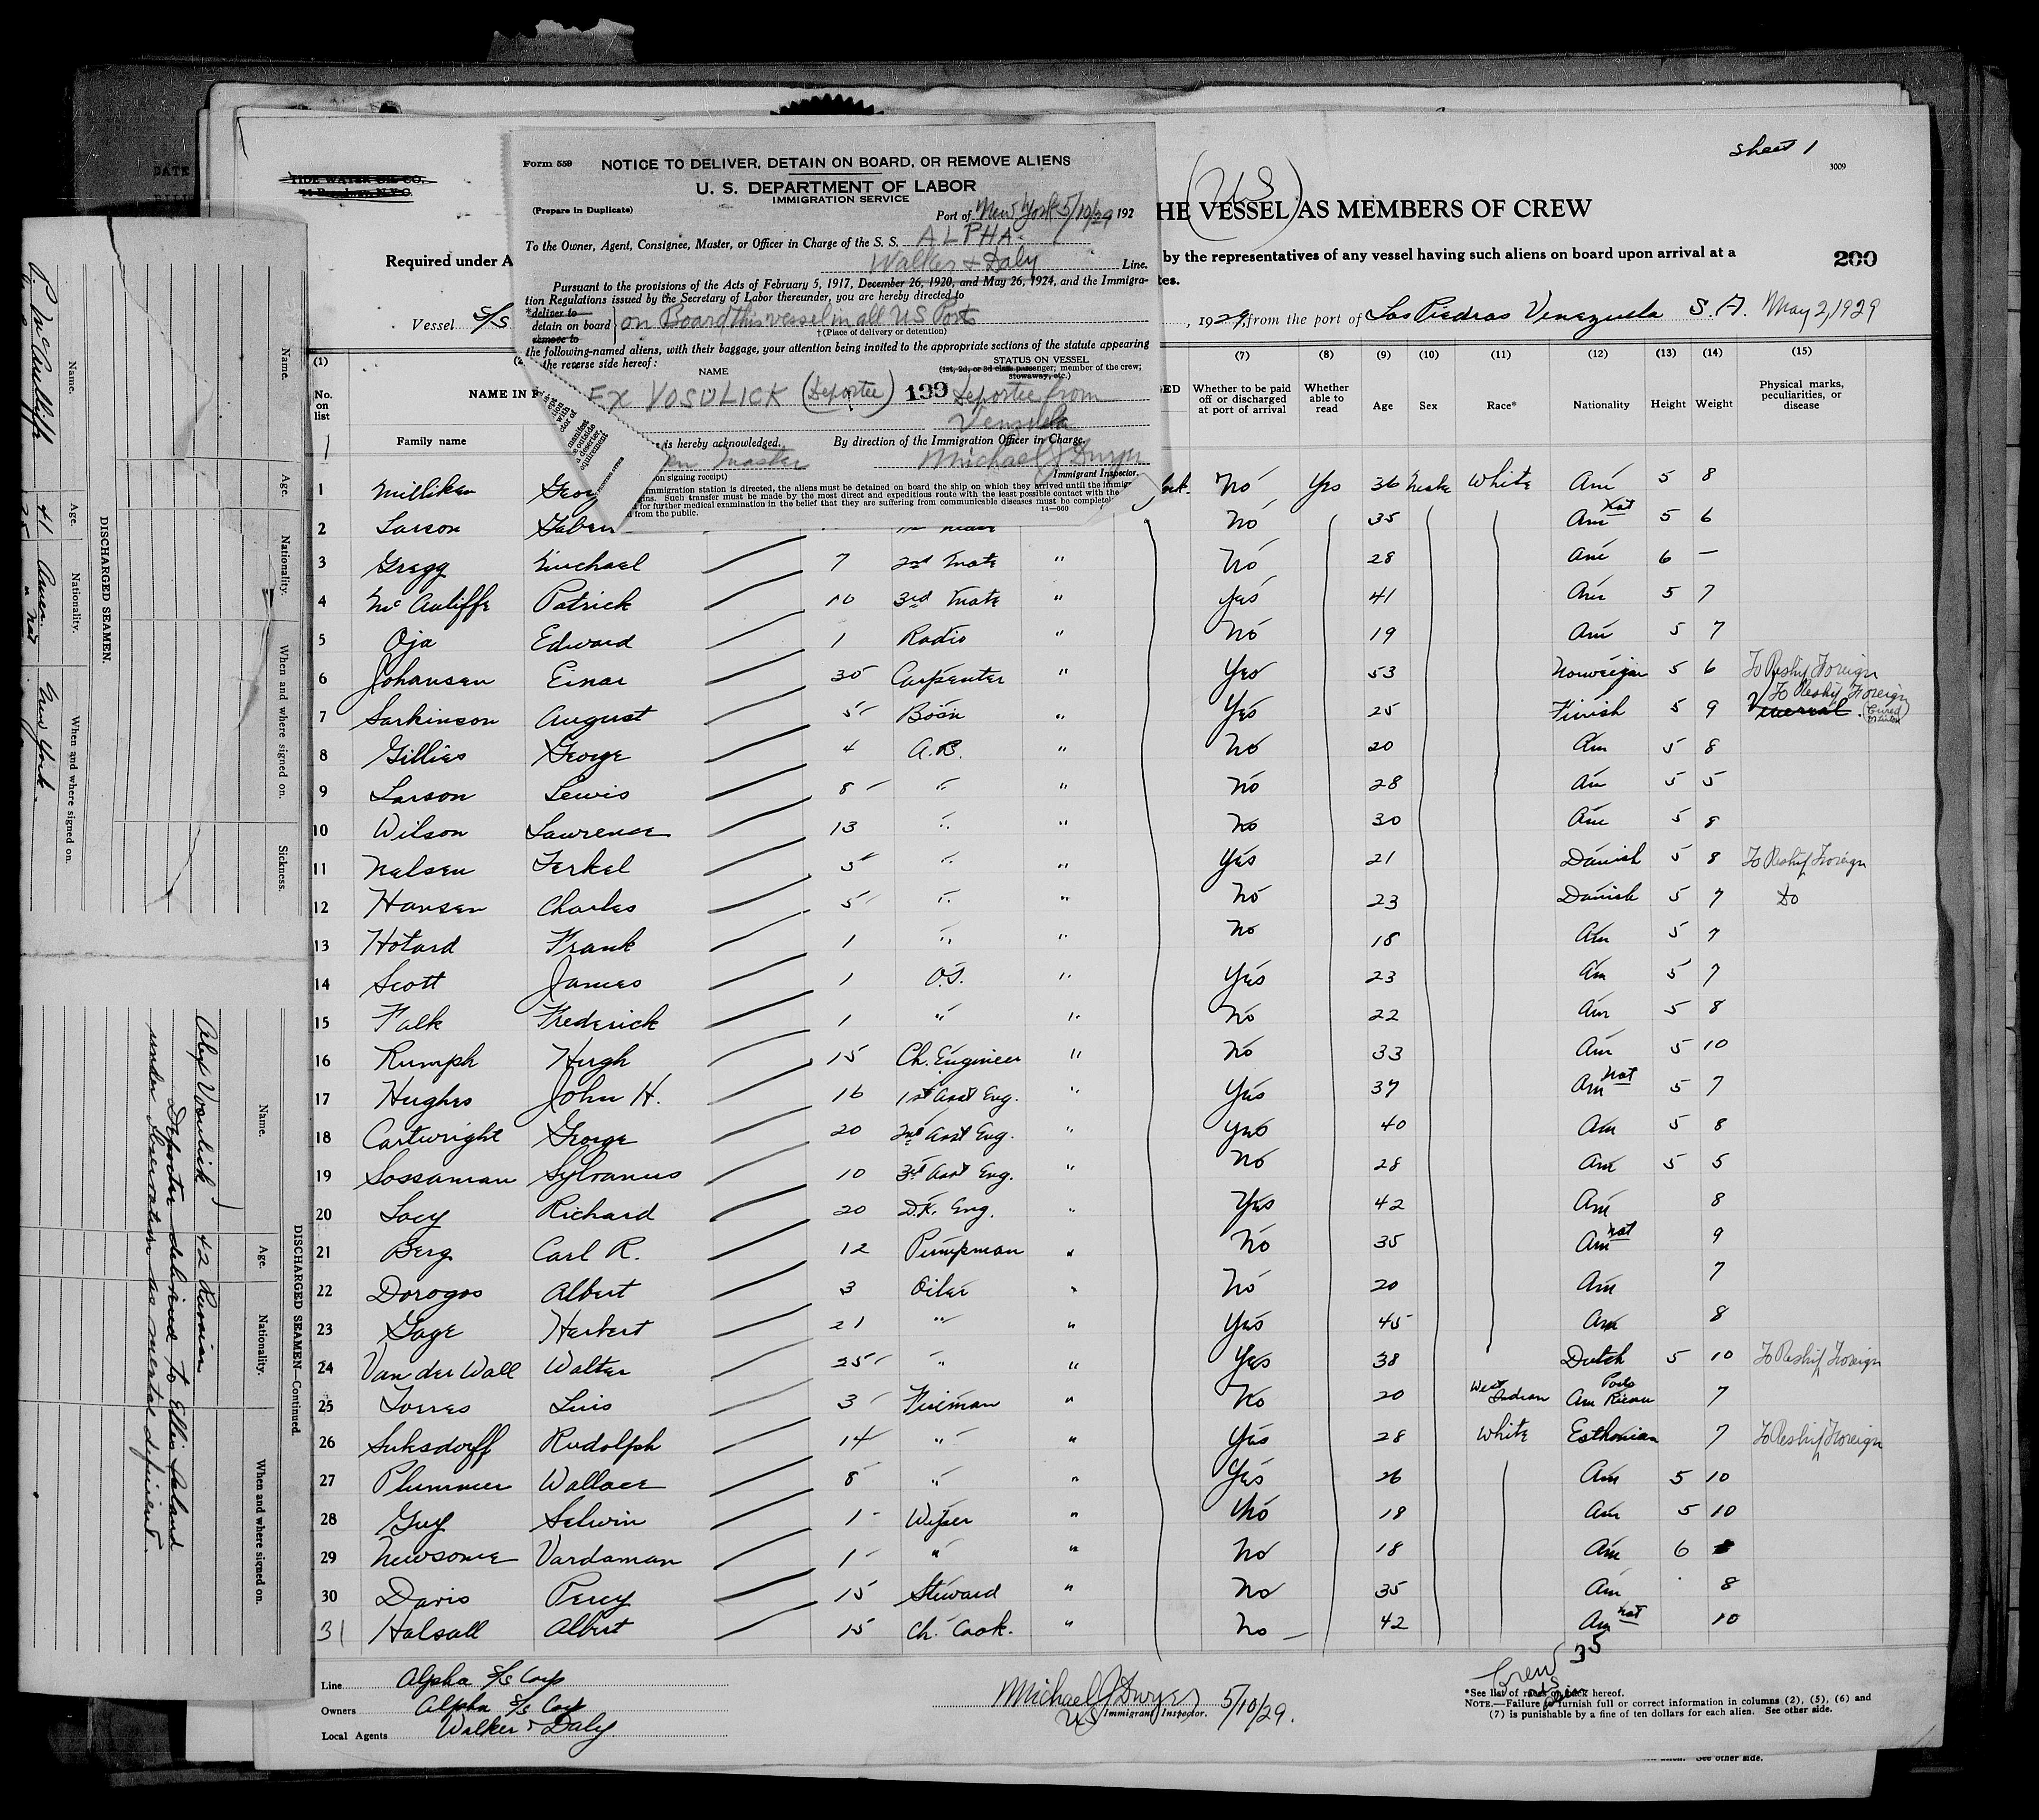 sheet 1
3009
TIDE WATER OIL CO.
Form 559
NOTICE TO DELIVER, DETAIN ON BOARD, OR REMOVE ALIENS
U. S. DEPARTMENT OF LABOR
IMMIGRATION SERVICE
(Prepare in Duplicate)
Port of New York 5/10/29 192
To the Owner, Agent, Consignee, Master, or Officer in Charge of the S. S. ALPHA
Walker & Daly Line.
Pursuant to the provisions of the Acts of February 5, 1917, December 26, 1920, and May 26, 1924, and the Immigra-
tion Regulations issued by the Secretary of Labor thereunder, you are hereby directed to
*deliver to
detain on board on Board this vessel in all US Ports
remove to
†(Place of delivery or detention)
the following-named aliens, with their baggage, your attention being invited to the appropriate sections of the statute appearing
the reverse side hereof:
NAME
STATUS ON VESSEL
(1st, 2d, or 3d class passenger; member of the crew;
stowaway, etc.)
VOSULICK (Deportee) 199 Deportee from
is hereby acknowledged.
By direction of the Immigration Officer in Charge.
Master
Michael J Dwyer
Immigrant Inspector.
on signing receipt)
immigration station is directed, the aliens must be detained on board the ship on which they arrived until the immigr
Such transfer must be made by the most direct and expeditious route with the least possible contact with the
for further medical examination in the belief that they are suffering from communicable diseases must be completely
from the public.
14—660
(US)
HE VESSEL AS MEMBERS OF CREW
Required under A
by the representatives of any vessel having such aliens on board upon arrival at a
tes.
200
Vessel S/S
, 1929, from the port of Las Piedras Venezuela S. A. May 2, 1929
(1) (7) (8) (9) (10) (11) (12) (13) (14) (15)
No. on list
NAME IN F
Family name
Whether to be paid off or discharged at port of arrival
Whether able to read
Age
Sex
Race*
Nationality
Height
Weight
Physical marks, peculiarities, or disease
1 Milliken Geor No Yes 36 Male White Am 5 8
2 Larson Gaben No 35 Am Nat 5 6
3 Gregg Michael 7 2nd Mate " No 28 Am 6 —
4 McAuliffe Patrick 10 3rd Mate " Yes 41 Am 5 7
5 Oja Edward 1 Radio " No 19 Am 5 7
6 Johansen Einar 30 Carpenter " Yes 53 Norweigan 5 6 To Reship Foreign
7 Sarkinson August 5 Bosn " Yes 25 Finish 5 9 To Reship Foreign Venereal (Cured
8 Gillies George 4 A.B. " No 20 Am 5 8
9 Larson Lewis 8 " " No 28 Am 5 5
10 Wilson Lawrence 13 " " No 30 Am 5 8
11 Nelsen Terkel 5 " " Yes 21 Danish 5 8 To Reship Foreign
12 Hansen Charles 5 " " No 23 Danish 5 7 Do
13 Hotard Frank 1 " " No 18 Am 5 7
14 Scott James 1 O.S. " Yes 23 Am 5 7
15 Falk Frederick 1 " " No 22 Am 5 8
16 Rumph Hugh 15 Ch. Engineer " No 33 Am 5 10
17 Hughes John H. 16 1st Asst Eng. " Yes 37 Am nat 5 7
18 Cartwright George 20 2nd Asst Eng. " Yes 40 Am 5 8
19 Sossaman Sylvanus 10 3rd Asst Eng. " No 28 Am 5 5
20 Lacy Richard 20 D.K. Eng. " Yes 42 Am 8
21 Berg Carl R. 12 Pumpman " No 35 Am nat 9
22 Dorogos Albert 3 Oiler " No 20 Am 7
23 Gage Herbert 21 " " Yes 45 Am 8
24 Van der Wall Walter 25 " " Yes 38 Dutch 5 10 To Reship Foreign
25 Torres Luis 3 Fireman " No 20 West Indian Am Porto Rican 7
26 Suksdorff Rudolph 14 " " Yes 28 White Esthonian 7 To Reship Foreign
27 Plummer Wallace 8 " " Yes 26 Am 5 10
28 Guy Selwin 1 Wiper " No 18 Am 5 10
29 Newsome Vardaman 1 " " No 18 Am 6
30 Davis Percy 15 Steward " No 35 Am 8
31 Halsall Albert 15 Ch. Cook. " No 42 Am nat 10
Line Alpha S/S Corp
Owners Alpha S/S Corp
Local Agents Walker & Daly
Michael J Dwyer
US Immigrant Inspector. 5/10/29.
Crew 35
*See list of races on back hereof.
NOTE.—Failure to furnish full or correct information in columns (2), (5), (6) and
(7) is punishable by a fine of ten dollars for each alien. See other side.
See other side.
DISCHARGED SEAMEN.
Name. Age. Nationality. When and where signed on.
P. McAuliffe 41 Amer. New York.
" Nat
Name. Age. Nationality. When and where signed on. Sickness.
DISCHARGED SEAMEN—Continued.
Name. Age. Nationality. When and where signed on.
Alex Vosulick 42 Russian
Deportee delivered to Ellis Island
under observation as mental deficient.